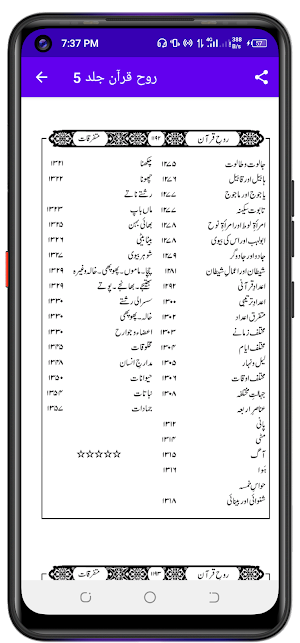 7:37 PM
4G
388
B/s
57
روح قرآن جلد 5
روحِ قرآن
۱۱۹۲
متفرقات
جالوت و طالوت ۱۲۷۵
ہابیل اور قابیل ۱۲۷۶
یاجوج اور ماجوج ۱۲۷۷
تابوت سکینہ ۱۲۷۷
امرأۃ لوط اور امرأۃ نوح ۱۲۷۸
ابولہب اور اس کی بیوی ۱۲۷۸
جادو اور جادوگر ۱۲۷۹
شیطان اور اعمالِ شیطان ۱۲۸۱
اعدادِ قرآنی ۱۲۹۲
اعدادِ ترتیبی ۱۳۰۰
متفرق اعداد ۱۳۰۲
مختلف زمانے ۱۳۰۳
مختلف ایام ۱۳۰۴
لیل و نہار ۱۳۰۵
مختلف اوقات ۱۳۰۶
جہاتِ مختلفہ ۱۳۰۸
عناصرِ اربعہ
پانی ۱۳۱۲
مٹی ۱۳۱۴
آگ ۱۳۱۵
ہوا ۱۳۱۶
حواسِ خمسہ
شنوائی اور بینائی ۱۳۱۸
چکھنا ۱۳۲۱
چھونا ۱۳۲۲
رشتے ناتے
ماں باپ ۱۳۲۳
بھائی بہن ۱۳۲۵
بیٹا بیٹی ۱۳۲۶
شوہر بیوی ۱۳۲۷
چچا۔ ماموں۔ پھوپھی۔ خالہ وغیرہ ۱۳۲۹
بھتیجے۔ بھانجے۔ پوتے ۱۳۲۹
سسرالی رشتے ۱۳۳۰
خالہ۔ پھوپھی ۱۳۳۰
اعضاء و جوارح ۱۳۳۰
مخلوقات ۱۳۴۵
مدارجِ انسان ۱۳۴۸
حیوانات ۱۳۵۰
نباتات ۱۳۵۴
جمادات ۱۳۵۷
☆☆☆☆☆
روحِ قرآن
۱۱۹۳
متفرقات